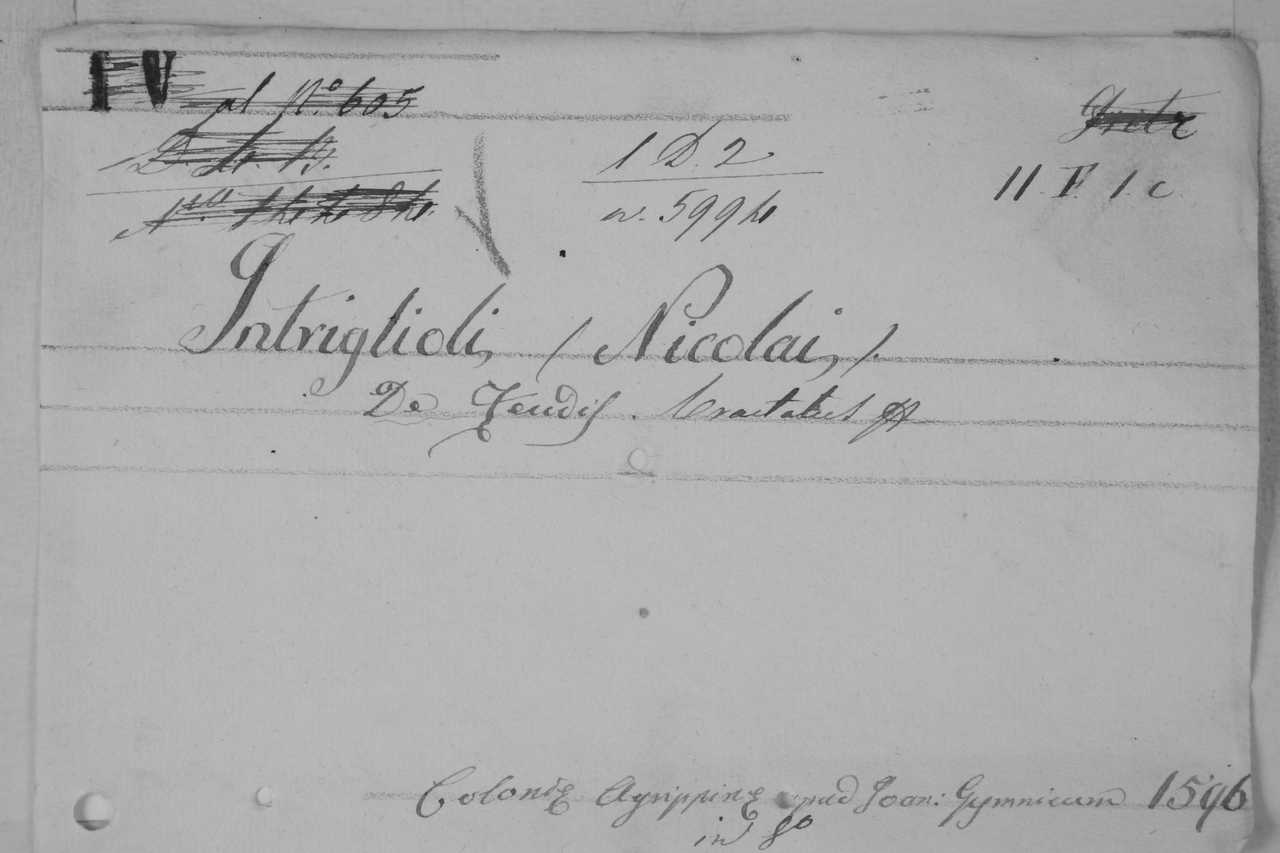 I V pl No. 605
1 D. 2
n. 599 h
11. F. 1. c
Intriglioli, (Nicolai,).
De Feudis. Tractatus
Coloniæ Agrippinę apud Joan: Gymnicum 1596
in 8o